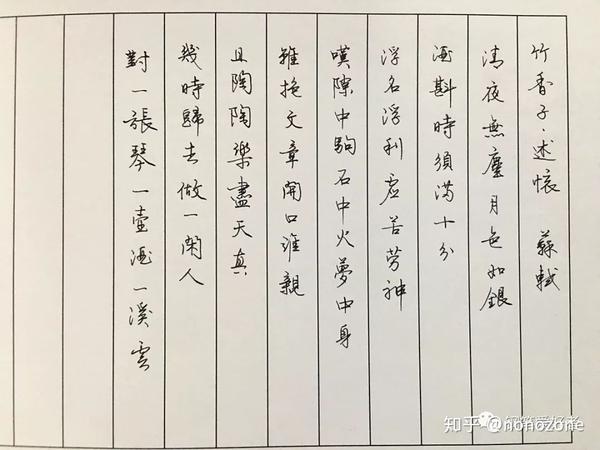 行香子·述懷 蘇軾
清夜無塵月色如銀
酒斟時須滿十分
浮名浮利虛苦勞神
嘆隙中駒石中火夢中身
雖抱文章開口誰親
且陶陶樂盡天真
幾時歸去做一閑人
對一張琴一壺酒一溪雲
知乎 @nonozone